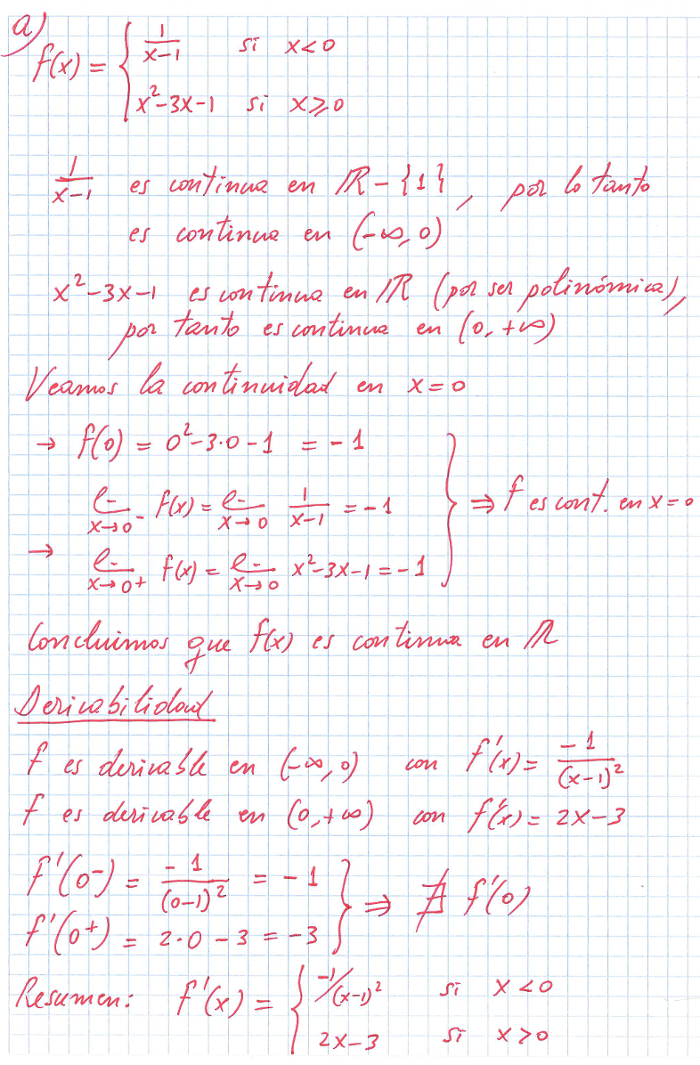 a)
f(x) = { 1/(x-1) si x<0
x²-3x-1 si x⩾0
1/(x-1) es continua en ℝ-{1}, por lo tanto
es continua en (-∞,0)
x²-3x-1 es continua en ℝ (por ser polinómica),
por tanto es continua en (0,+∞)
Veamos la continuidad en x=0
→ f(0) = 0²-3·0-1 = -1
lim x→0⁻ f(x) = lim x→0 1/(x-1) = -1 } ⇒ f es cont. en x=0
→ lim x→0+ f(x) = lim x→0 x²-3x-1 = -1
Concluimos que f(x) es continua en ℝ
Derivabilidad
f es derivable en (-∞,0) con f'(x) = -1/(x-1)²
f es derivable en (0,+∞) con f'(x) = 2x-3
f'(0⁻) = -1/(0-1)² = -1 } ⇒ ∄ f'(0)
f'(0⁺) = 2·0-3 = -3
Resumen: f'(x) = { -1/(x-1)² si x<0
2x-3 si x>0